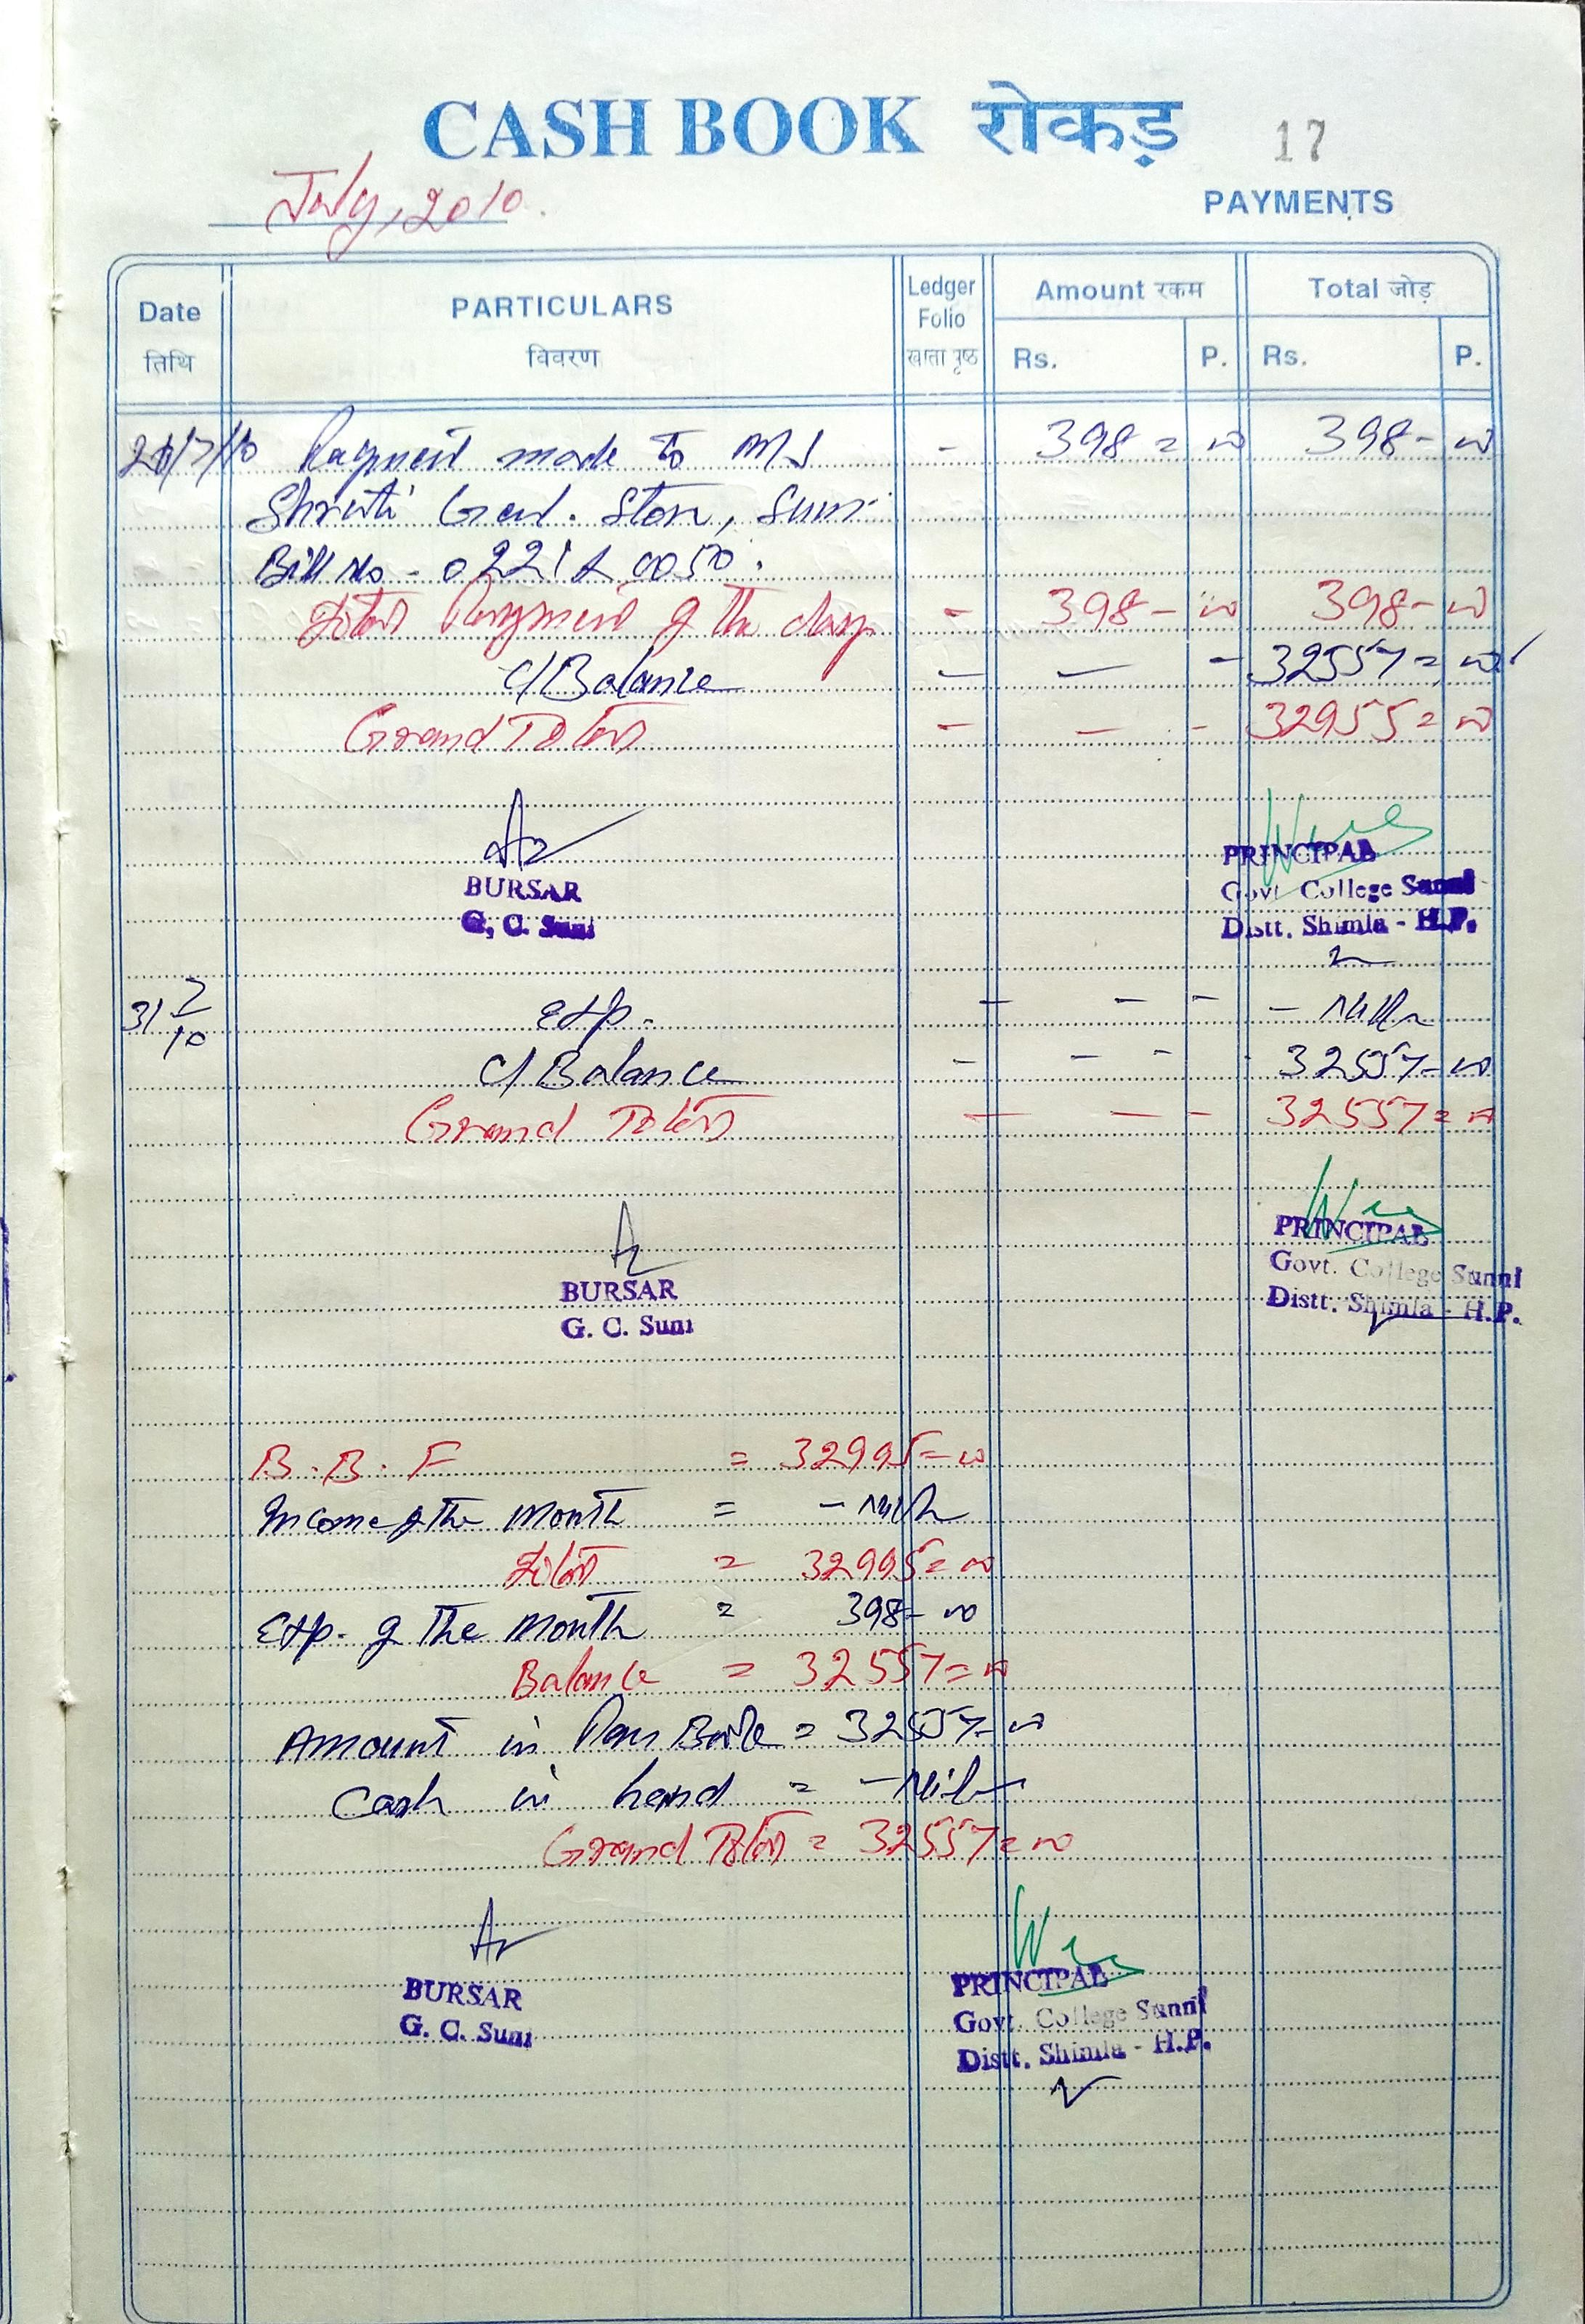 CASH BOOK रोकड़ 17
July, 2010.
PAYMENTS
Date PARTICULARS Ledger Folio Amount रकम Total जोड़
तिथि विवरण खाता पृष्ठ Rs. P. Rs. P.
/7/10 Payment made to M/S - 398 = 00 398 - 00
Shruti Genl. Store, Suni
Bill No - 0221 & 0050.
Total Payment of the day - 398 - 00 398 - 00
C/Balance - - - 32557 = 00
Grand Total - - - 32955 = 00
BURSAR
G. C. Suni
PRINCIPAL
Govt College Sunni
Distt. Shimla - H.P.
31/7/10 Exp. - - - - Nil -
C/Balance - - - 32557 - 00
Grand Total - - - 32557 = 00
BURSAR
G. C. Suni
PRINCIPAL
Govt. College Sunni
Distt. Shimla - H.P.
B.B.F = 32995 = 00
Income of the Month = - Nil -
Total = 32995 = 00
Exp. of the Month = 398 - 00
Balance = 32557 = 00
Amount in Pass Book = 32557 - 00
Cash in hand = - Nil -
Grand Total = 32557 = 00
BURSAR
G. C. Suni
PRINCIPAL
Govt. College Sunni
Distt. Shimla - H.P.